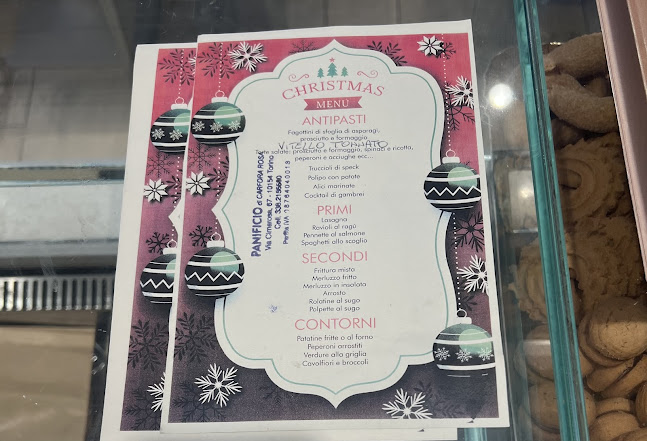 CHRISTMAS
MENU
ANTIPASTI
Fagottini di sfoglia di asparagi,
prosciutto e formaggio
VITELLO TONNATO
Torte salate: prosciutto e formaggio, spinaci e ricotta,
peperoni e acciughe ecc...
Truccioli di speck
Polipo con patate
Alici marinate
Cocktail di gamberi
PRIMI
Lasagna
Ravioli al ragù
Pennette al salmone
Spaghetti allo scoglio
SECONDI
Frittura mista
Merluzzo fritto
Merluzzo in insalata
Arrosto
Rolatine al sugo
Polpette al sugo
CONTORNI
Patatine fritte o al forno
Peperoni arrostiti
Verdure alla griglia
Cavolfiori e broccoli
PANIFICIO di CAFFORIA ROSA
Via Cimarosa, 87 - 10154 Torino
Cell. 338.2155680
Partita IVA